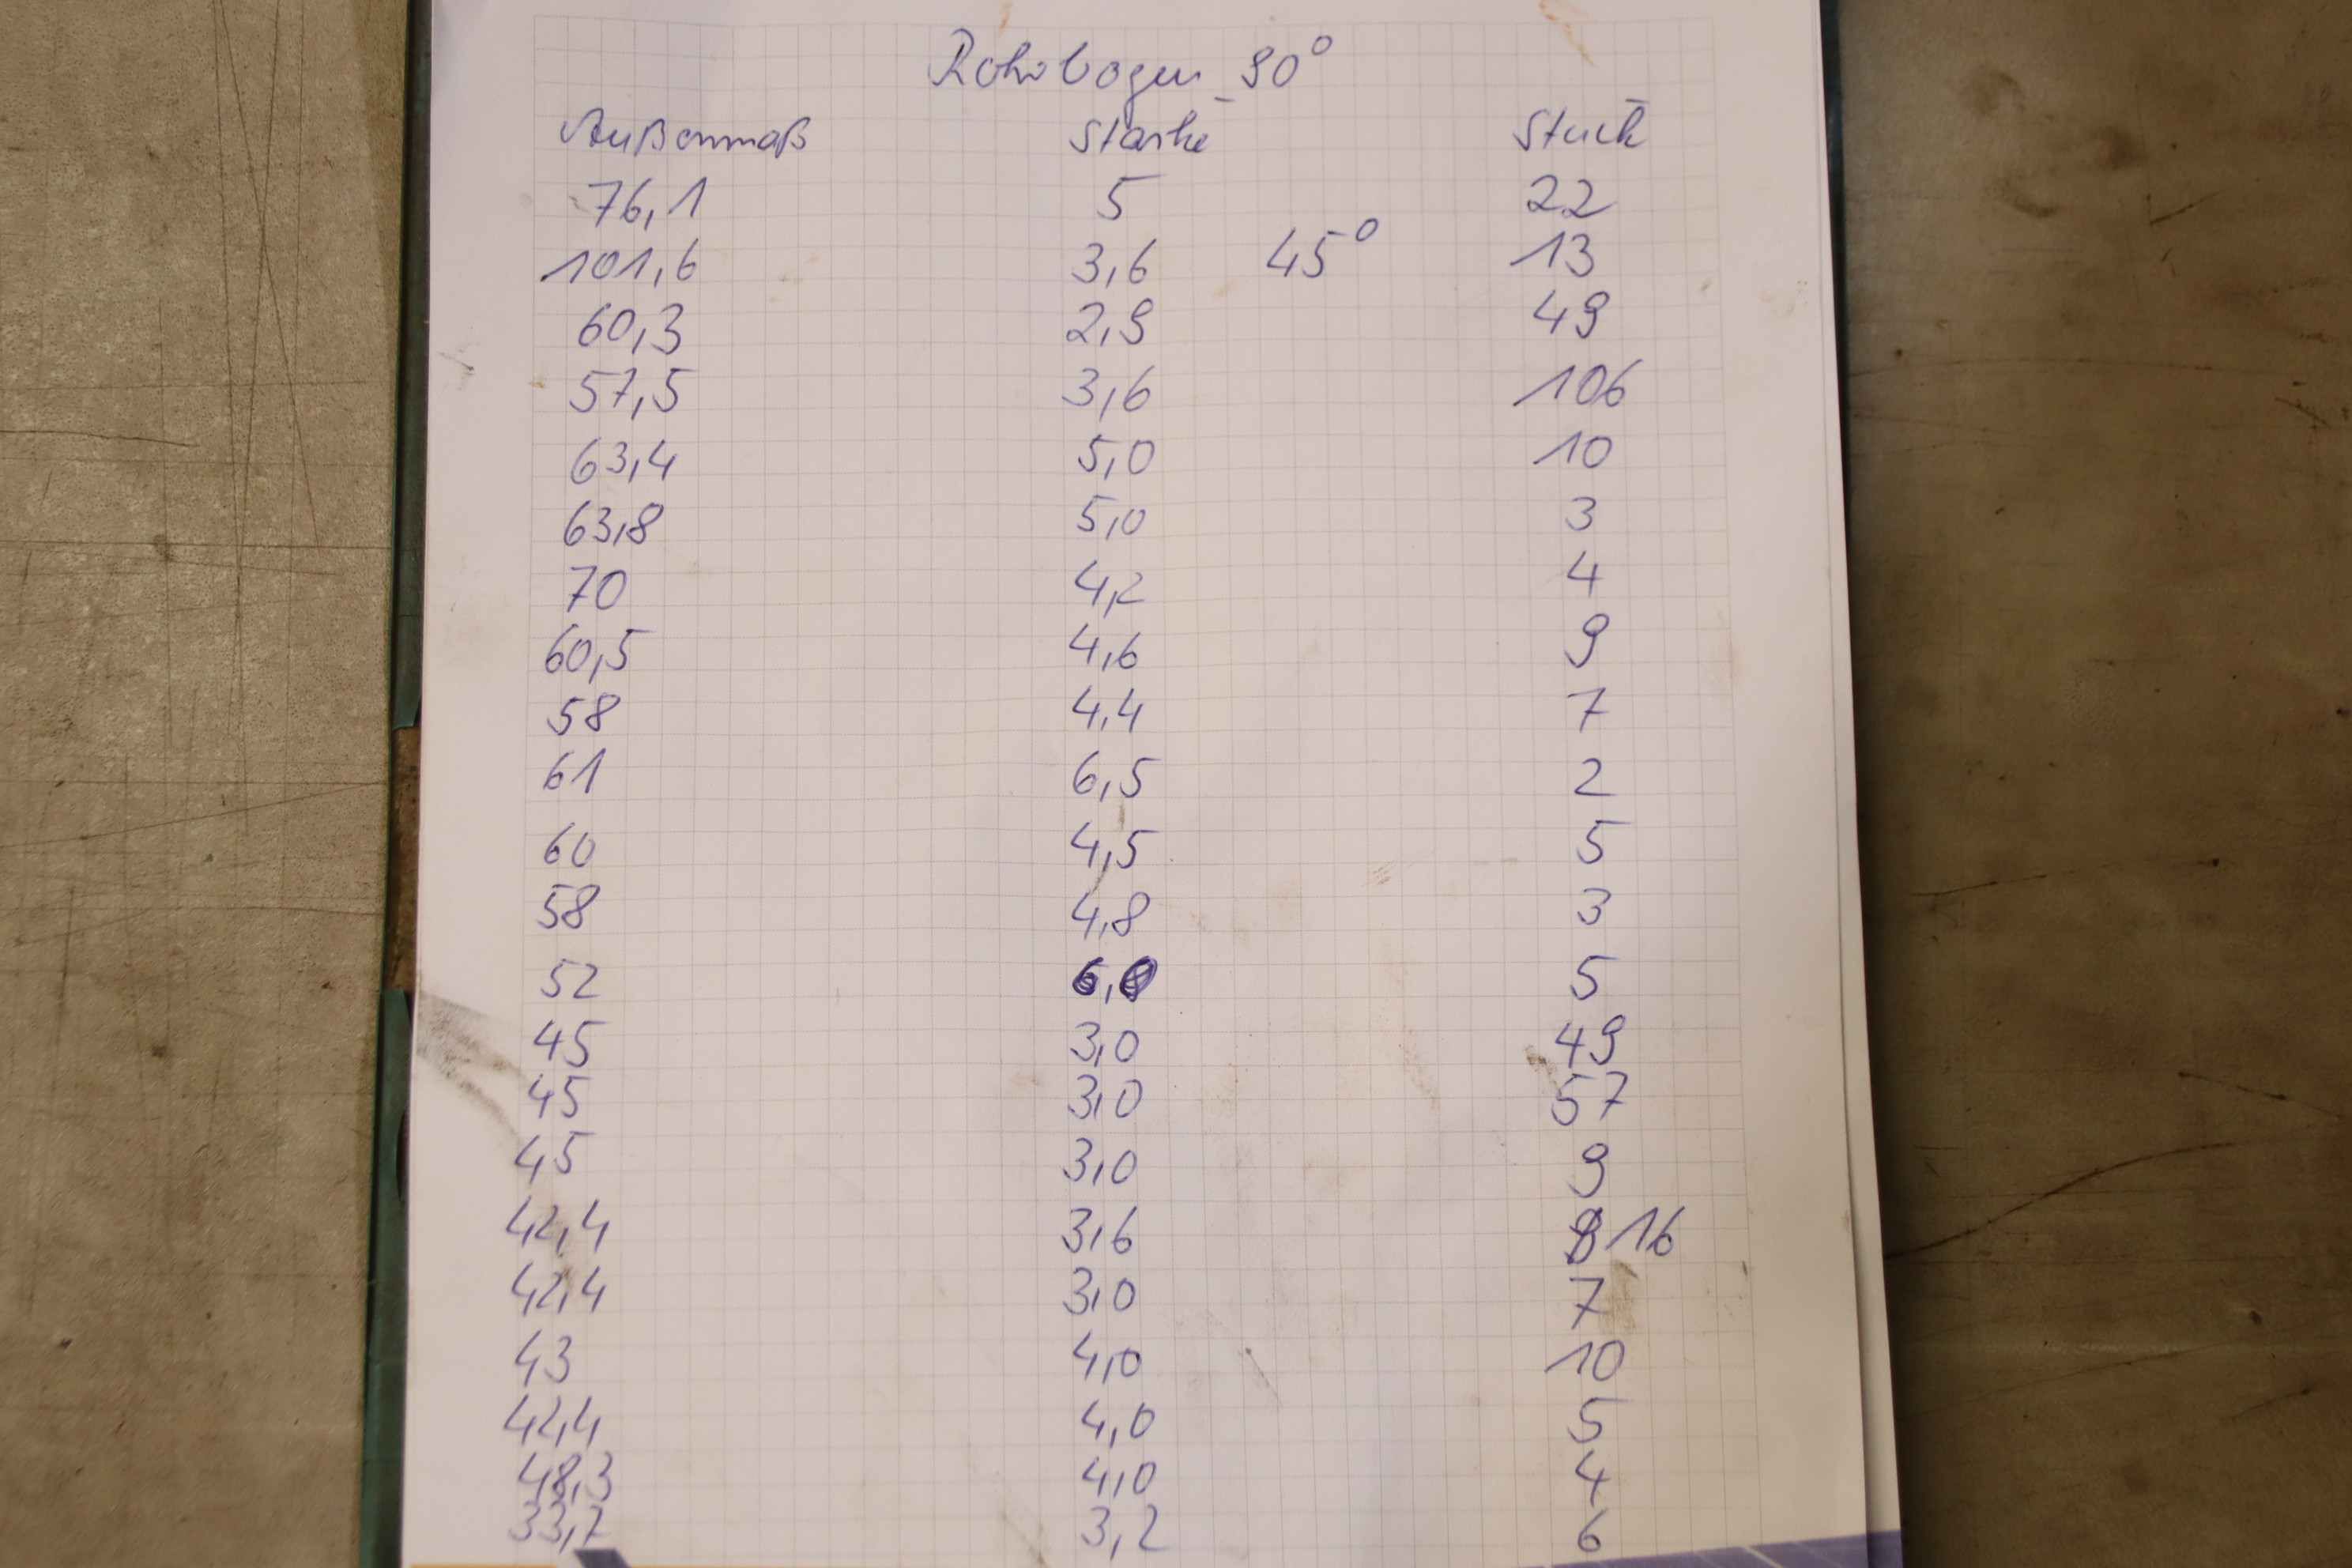 Rohrbogen 90°
Außenmaß Starke Stück
76,1 5 22
101,6 3,6 45° 13
60,3 2,9 49
57,5 3,6 106
63,4 5,0 10
63,8 5,0 3
70 4,2 4
60,5 4,6 9
58 4,4 7
61 6,5 2
60 4,5 5
58 4,8 3
52 6,0 5
45 3,0 49
45 3,0 57
45 3,0 9
42,4 3,6 16
42,4 3,0 7
43 4,0 10
42,4 4,0 5
48,3 4,0 4
33,7 3,2 6